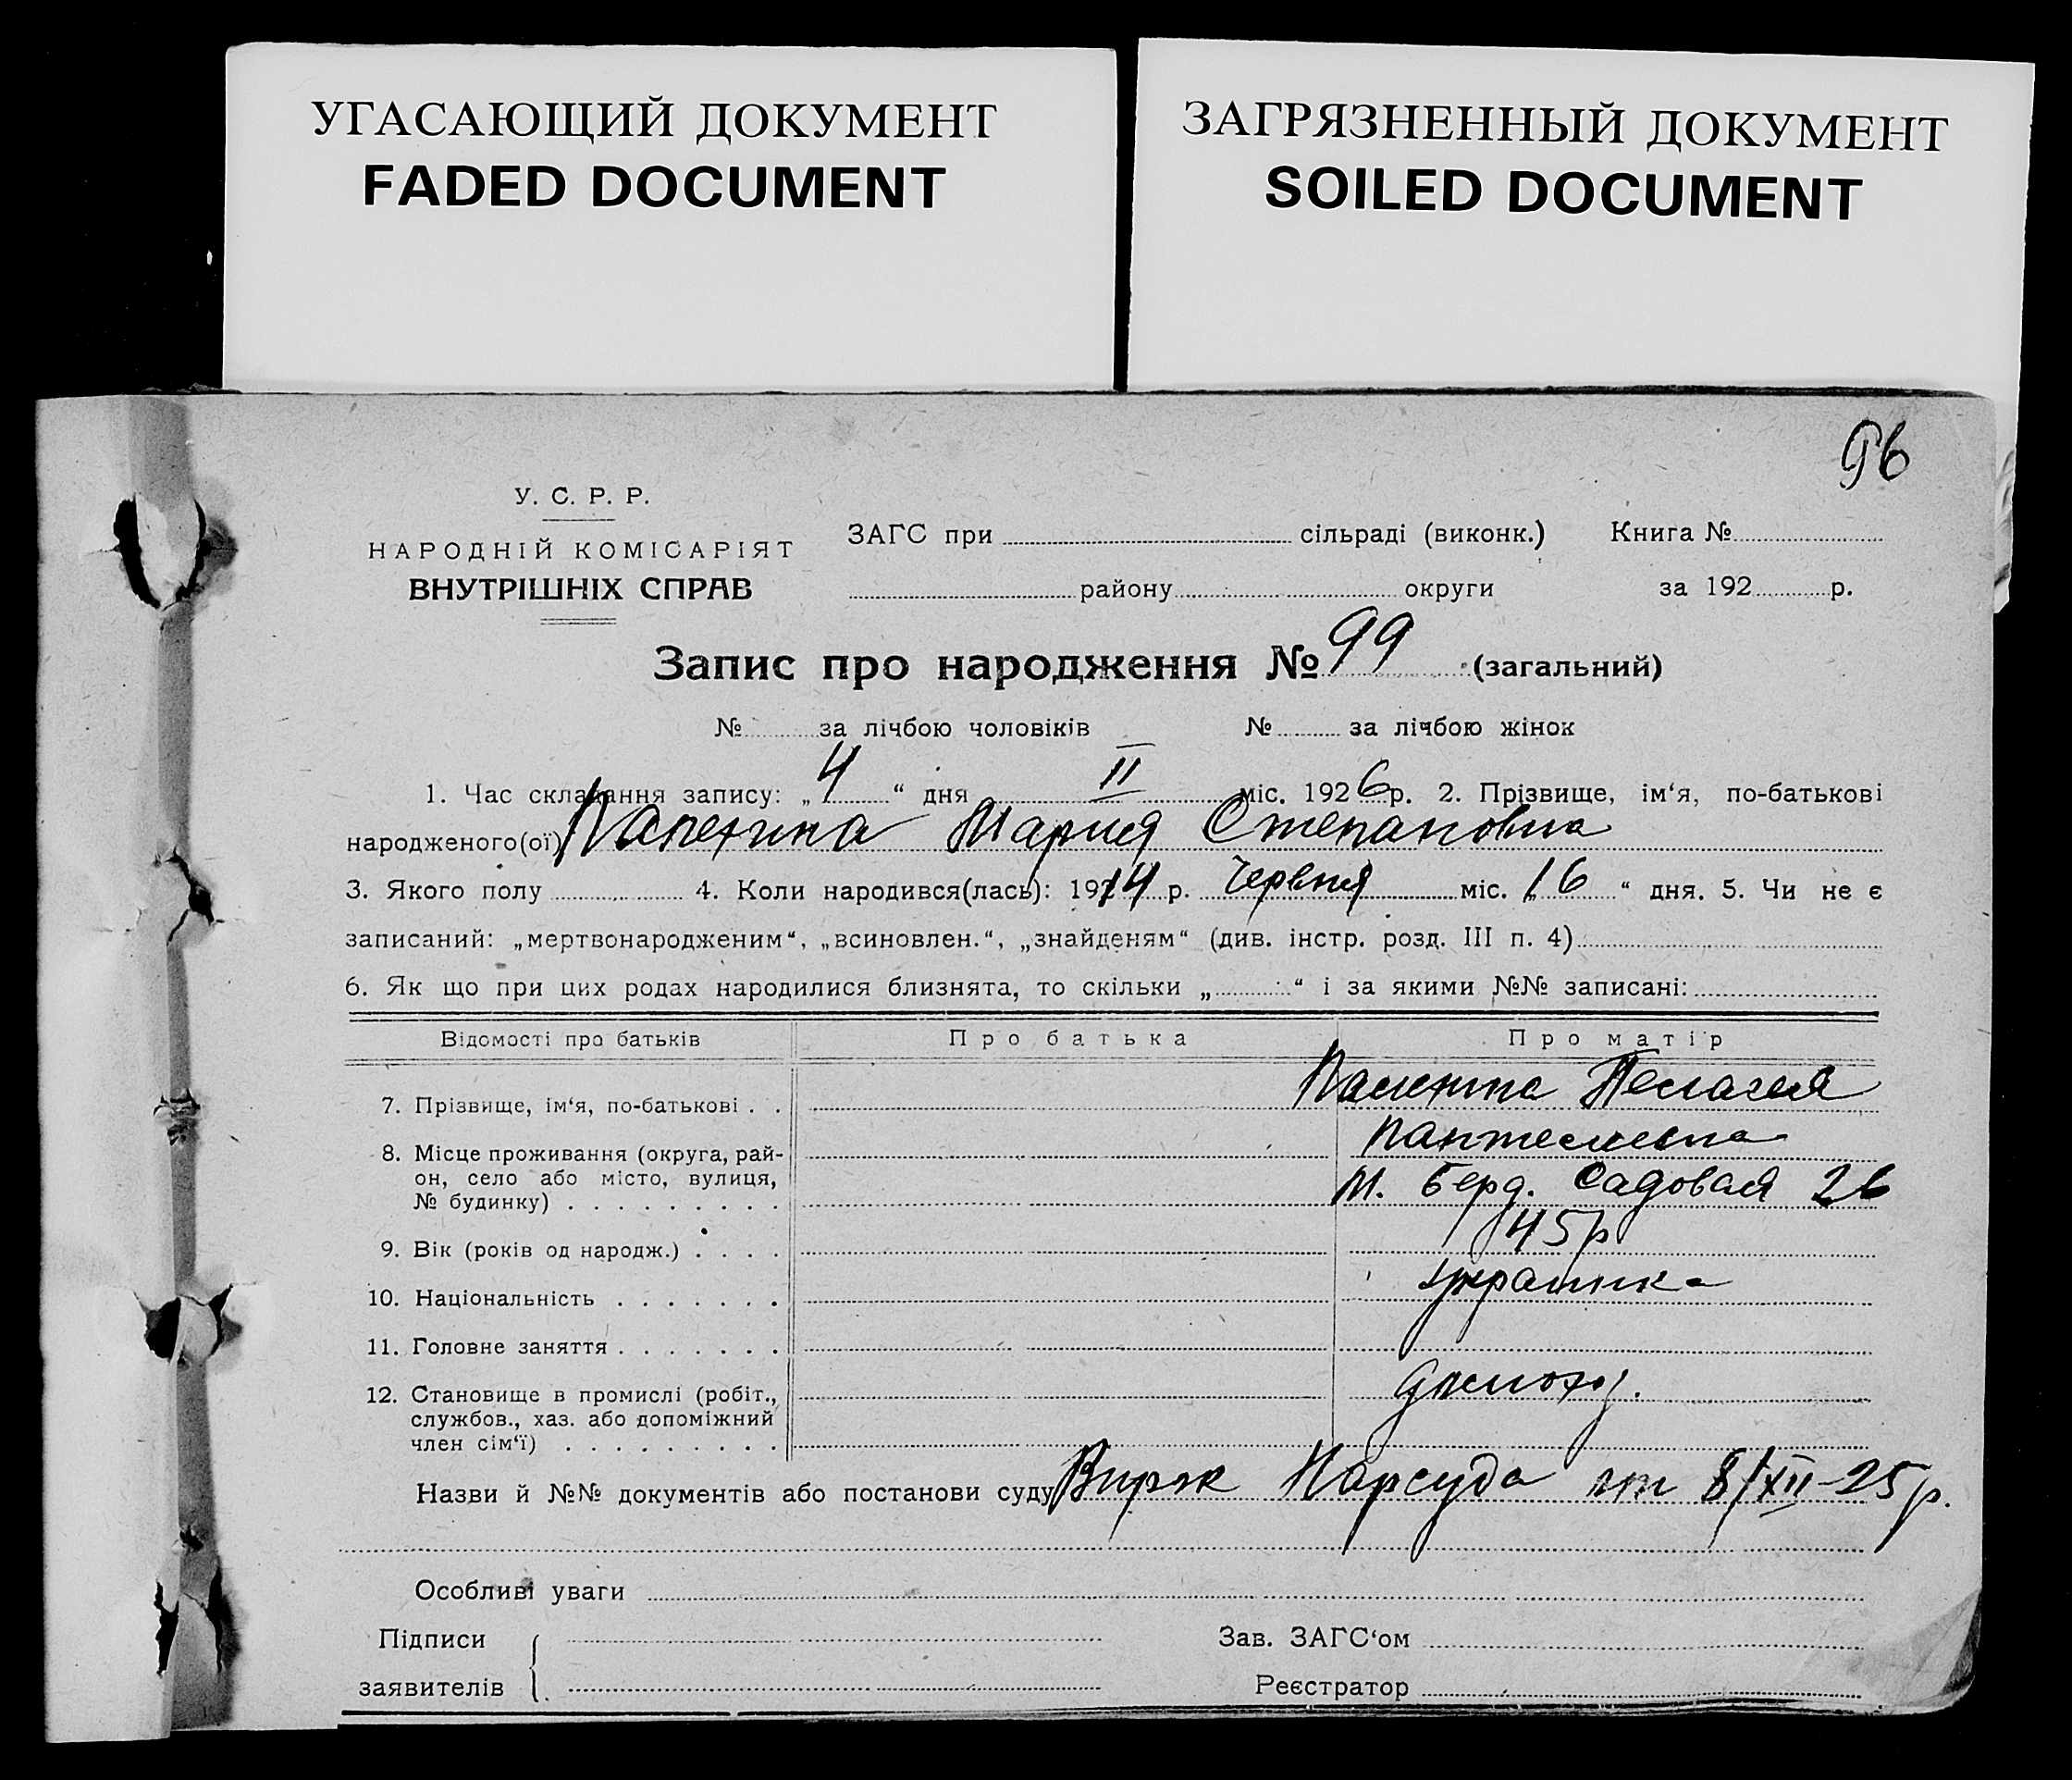 УГАСАЮЩИЙ ДОКУМЕНТ
FADED DOCUMENT
ЗАГРЯЗНЕННЫЙ ДОКУМЕНТ
SOILED DOCUMENT
96
У. С. Р. Р.
НАРОДНІЙ КОМІСАРІЯТ
ВНУТРІШНІХ СПРАВ
ЗАГС при сільраді (виконк.) Книга №
району округи за 192 р.
Запис про народження № 99 (загальний)
№ за лічбою чоловіків № за лічбою жінок
1. Час складання запису: „4“ дня II міс. 1926 р. 2. Прізвище, ім‘я, по-батькові
народженого(ої) Мария Степановна
3. Якого полу 4. Коли народився(лась): 1914 р. Червня міс. „16“ дня. 5. Чи не є
записаний: „мертвонародженим“, „всиновлен.“, „знайденям“ (див. інстр. розд. III п. 4)
6. Як що при цих родах народилися близнята, то скільки „ “ і за якими №№ записані:
Відомості про батьків Про батька Про матір
7. Прізвище, ім‘я, по-батькові . . Пелагея
8. Місце проживання (округа, рай-
он, село або місто, вулиця, М. Берд. Садовая 26
№ будинку) . . . . . . . . .
9. Вік (років од народж.) . . . . 45 р
10. Національність . . . . . . . украинка
11. Головне заняття . . . . . . .
12. Становище в промислі (робіт.,
службов., хаз. або допоміжний
член сім‘ї) . . . . . . . . .
Назви й №№ документів або постанови суду Нарсуда от 8/XII-25 р.
Особливі уваги
Підписи Зав. ЗАГС‘ом
заявителів Реєстратор